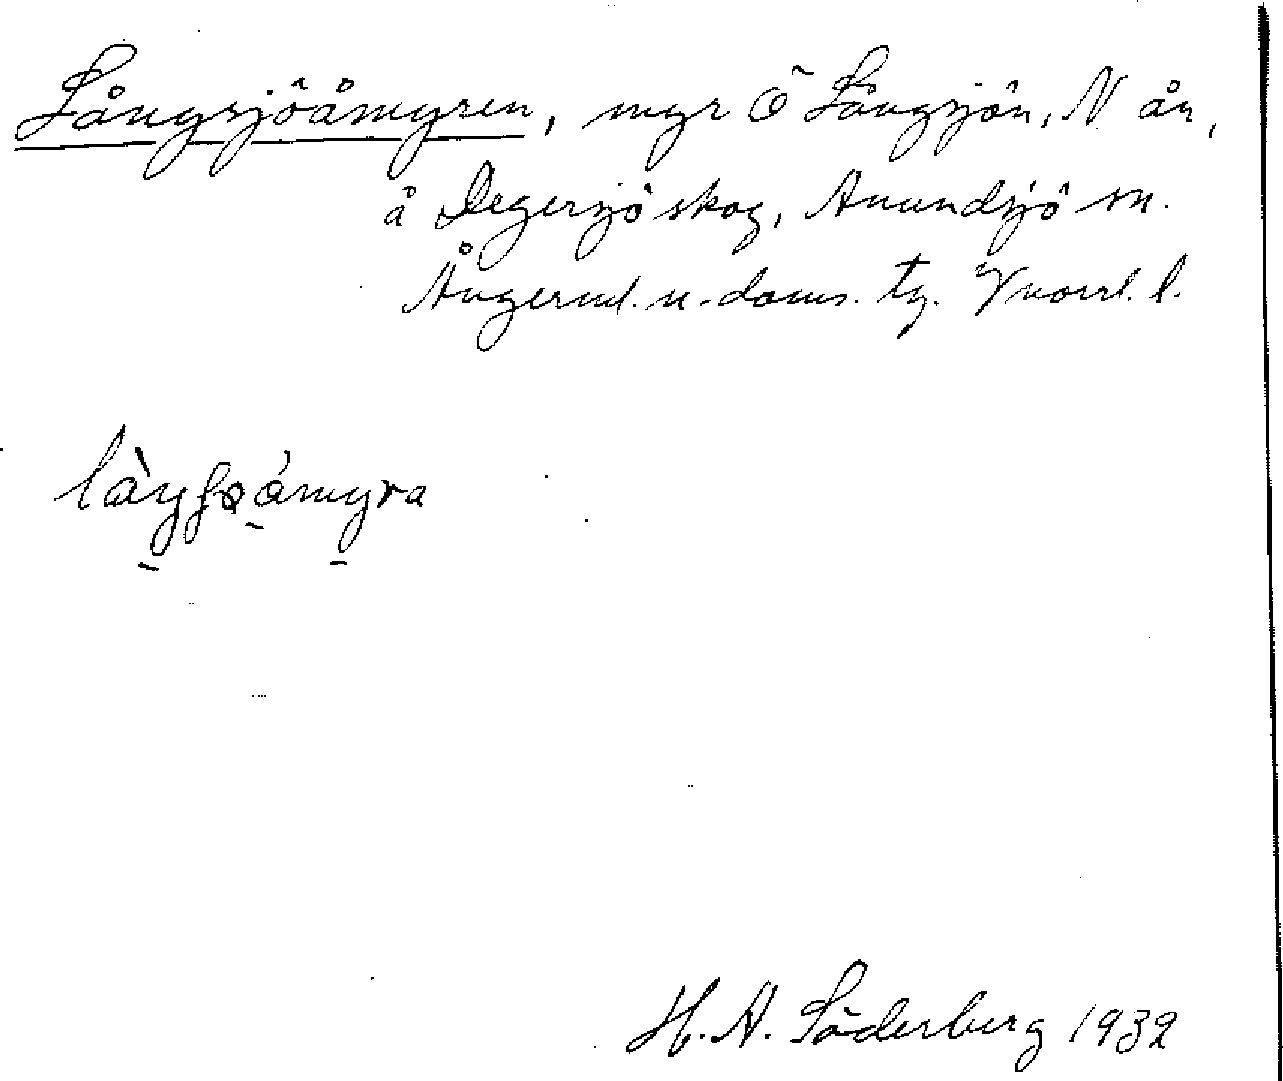 Långsjöåmyren, myr Ö Långsjön, N ån,
å Degersjö skog, Anundsjö sn.
Ångerml. n. doms. tg. Vnorrl. l.
H. A. Söderberg 1932